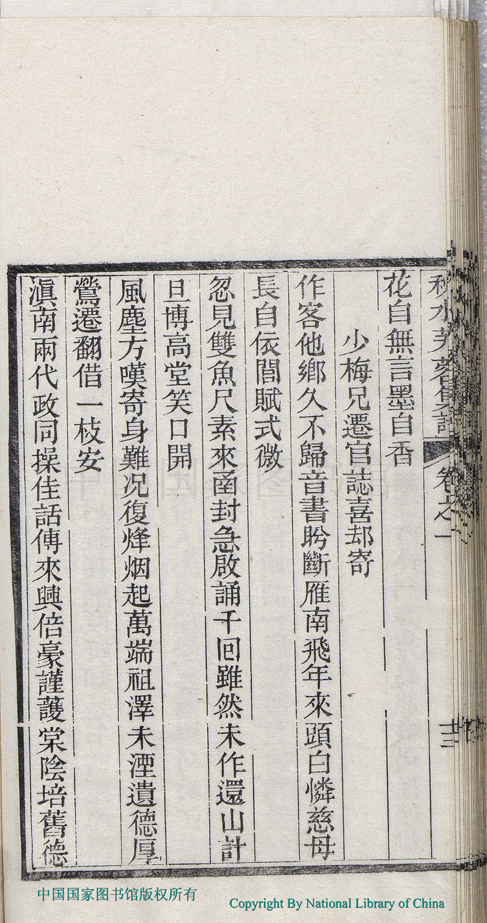 花自無言墨自香
少梅兄遷官誌喜却寄
作客他鄉久不歸音書盻斷雁南飛年來頭白憐慈母
長自依閭賦式微
忽見雙魚尺素來函封急啟誦千回雖然未作還山計
且博高堂笑口開
風塵方嘆寄身難况復烽烟起萬端祖澤未湮遺德厚
鶯遷翻借一枝安
滇南兩代政同操佳話傳來興倍豪謹護棠陰培舊德
卷之一
十三
中国国家图书馆版权所有
Copyright By National Library of China